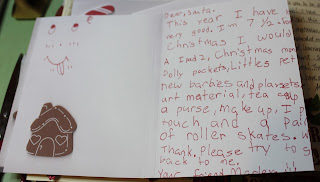 Dear, Santa.
This year I have
very good. I'm 7 1/2
Christmas I would
A Ipad 2, Christmas
Polly pockets, Littles pet
new barbies and playsets,
art material, tea cup
a purse, make up, I p
touch and a pair
of roller skates.
Thank, Please try to
back to me.
Your friend